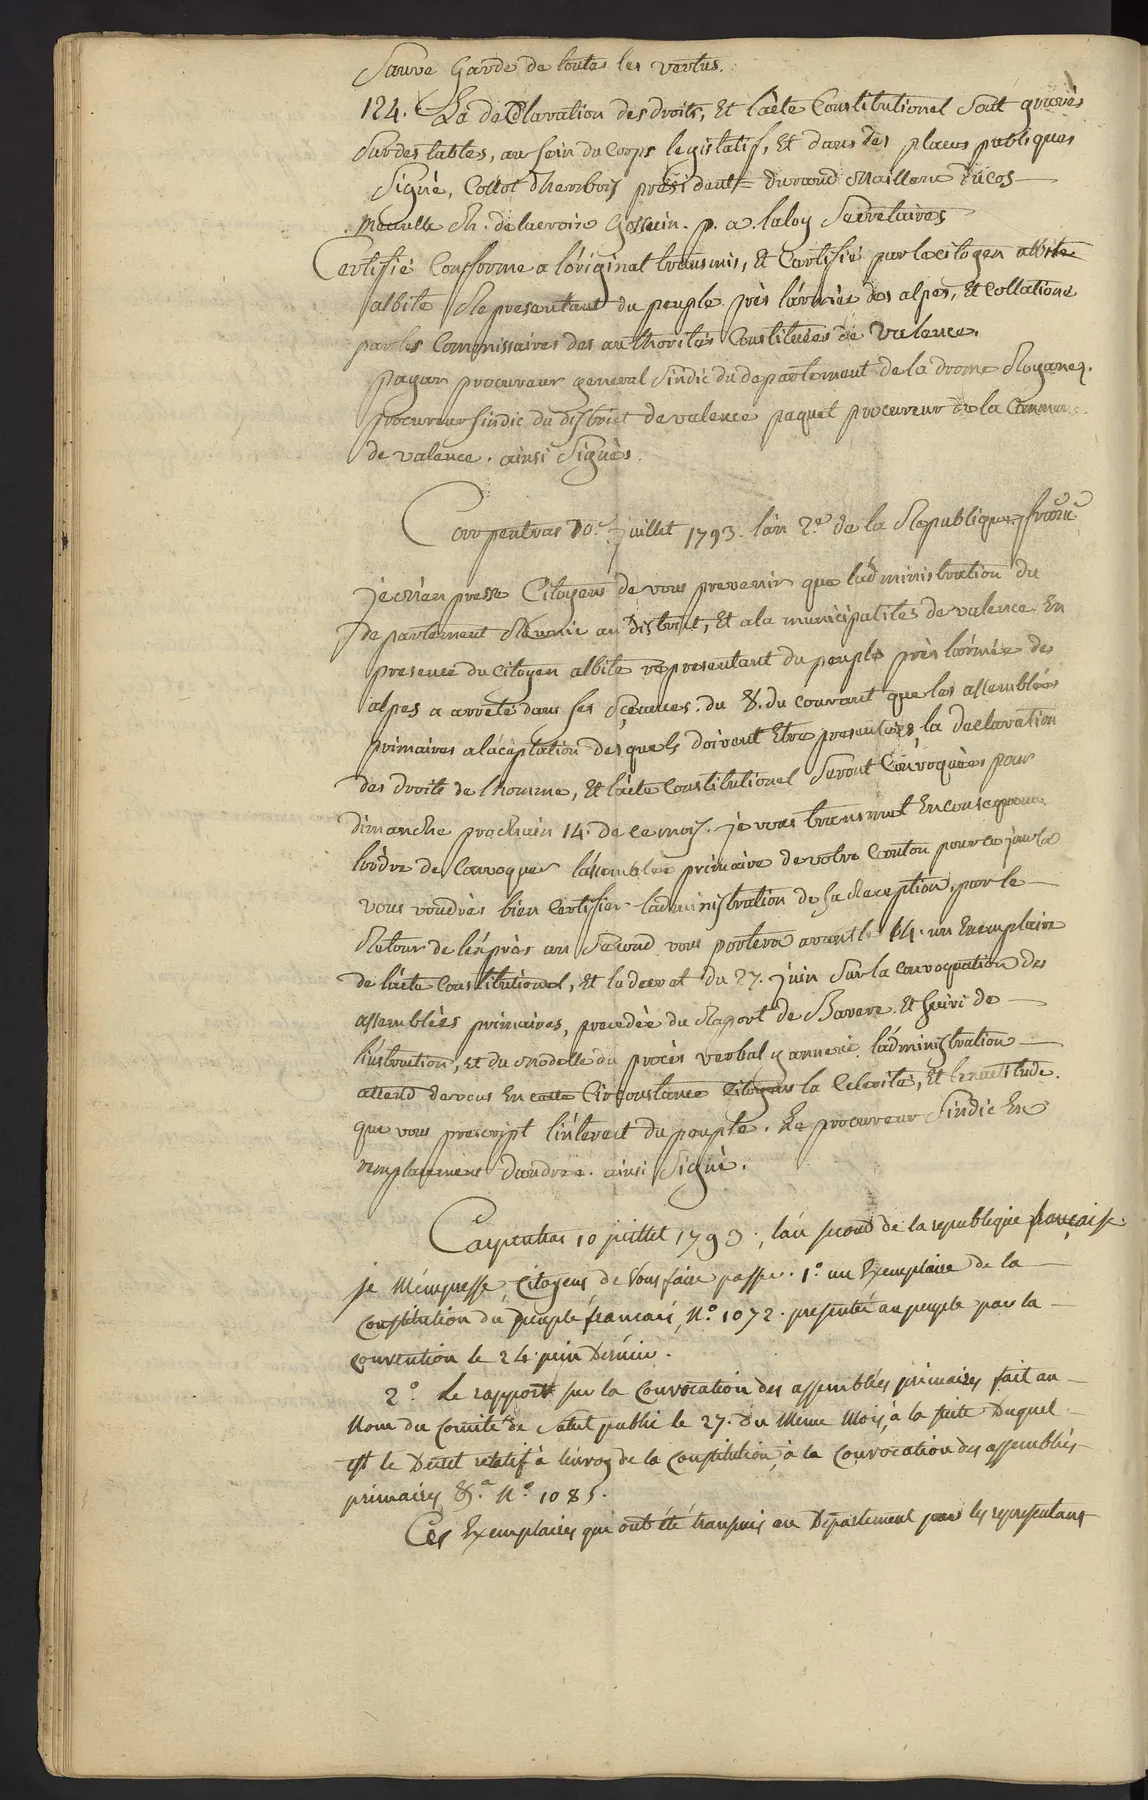 Sauve Garde de toutes les vertus.
124. La déClaration des droits, Et làcte Constitutionel Sont gravés
Sur des tables, au sein du Corps legislatif, Et dans les places publiques
Signé, Collot dherbois president durand Maillane Ducos
Meaulle Ch. delacroix Gossuin. p. a. laloy Secretaires
Certifié Conforme a l'original transmis, Et Certifié par le citoyen
albite Representant du peuple près l'armée des alpes, Et Collationé
par les Commissaires des authorités Constituées de Valence.
payan procureur general Sindic du departement de la drome
procureur Sindic du district de valence paquet procureur de la Commune
de valence. ainsi Signés.
Carpentras 10. Juillet 1793. l'an 2.e de la Republique franc
je m'en presse Citoyens de vous prevenir que l'administration du
departement Reunie au District, Et a la municipalités de valence En
presence du Citoyen albite representant du peuple près l'armée de
alpes a arreté dans ses Sceances du 8. du courant que les assemblées
primaires a l'aceptation desquels doivent Etre presentées la declaration
des droits de lhomme, Et lacte Constitutionel Seront Convoquées pour
dimanche prochain 14. de ce mois. je vous transmet En consequence
l'ordre de Convoquer l'assemblée primaire de votre Canton pour ce jour la
vous voudrés bien Certifier l'administration de sa Reception, par le
Retour de l'éxprès un Second vous portera avant le 14. un Exemplaire
de lacte Constitutionel, Et le decret du 27. juin Sur la convoquation des
assemblées primaires, precedée du Raport de Barere Et Suivi de
l'instruction, Et du Modelle du procès verbal y annexé. l'administration
attend de vous En cette Circonstance Citoyens la Celerité, Et l'exactitude
que vous prescript l'interest du peuple. Le procureur Sindic En
remplacement d'andrée. ainsi Signé.
Carpentras 10 juillet 1793., l'an second de la republique française.
je M'empresse, Citoyens de Vous faire passer. 1.o un Exemplaire de la
Constitution du peuple francais, N.o 1072. presentée au peuple par la
convention le 24. juin Dernier.
2.o Le rapport sur la Convocation des assemblées primaires fait au
Nom du Comité de Salut public le 27. du Meme Mois, à la suite Duquel
est le Decret relatif à l'envoy de la Constitution, à la Convocation des assemblées
primaires &.a N.o 1085.
Ces Exemplaires qui ont été transmis au Département par les representans